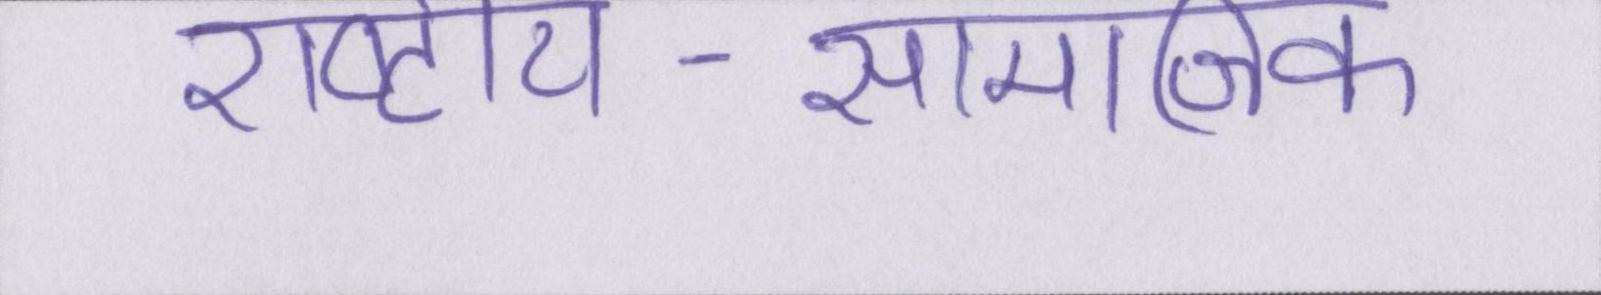 राष्ट्रीय - सामाजिक